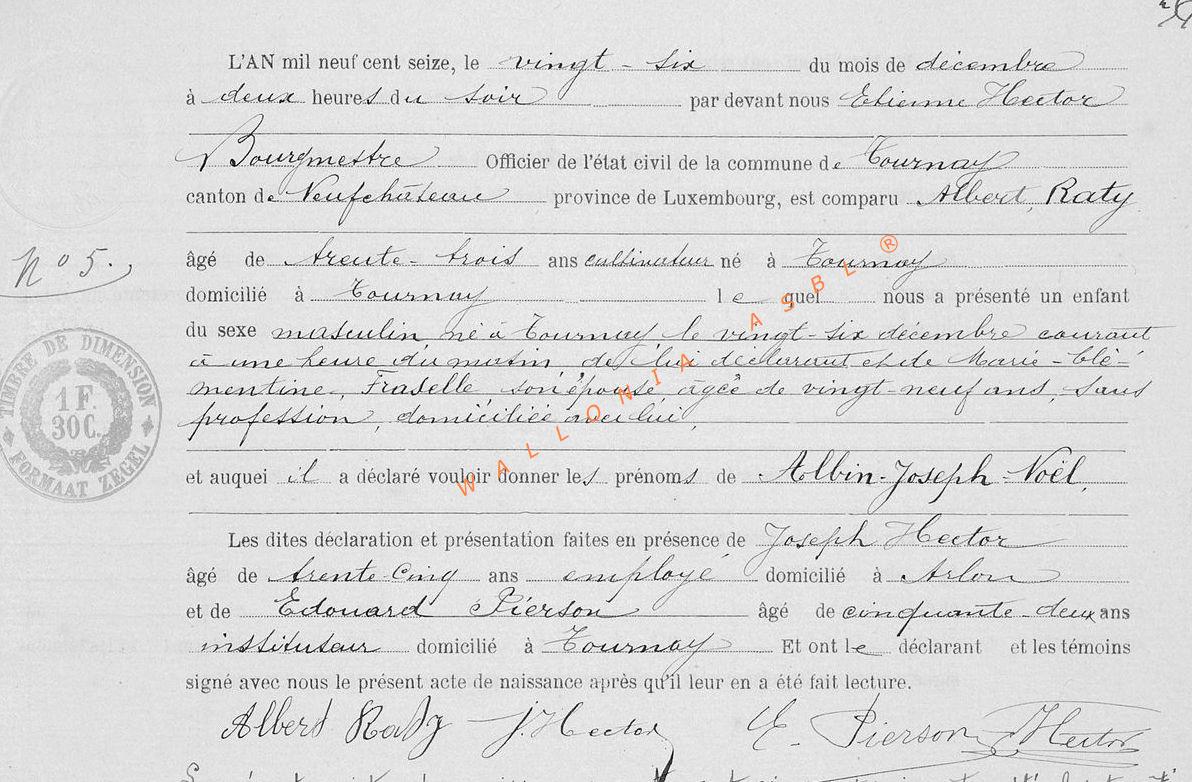 L'AN mil neuf cent seize, le vingt-six du mois de décembre
à deux heures du soir par devant nous Etienne Hector
Bourgmestre Officier de l'état civil de la commune de Tournay
canton de Neufchâteau province de Luxembourg, est comparu Albert Raty
N° 5.
âgé de trente-trois ans cultivateur né à Tournay
domicilié à Tournay lequel nous a présenté un enfant
du sexe masculin, né à Tournay, le vingt-six décembre courant
à une heure du matin, de lui déclarant et de Marie-Clé-
mentine Fraselle son épouse âgée de vingt-neuf ans, sans
profession, domiciliée avec lui,
et auquel il a déclaré vouloir donner les prénoms de Albin-Joseph-Noël,
Les dites déclaration et présentation faites en présence de Joseph Hector
âgé de trente-cinq ans employé domicilié à Arlon
et de Edouard Pierson âgé de cinquante-deux ans
instituteur domicilié à Tournay Et ont le déclarant et les témoins
signé avec nous le présent acte de naissance après qu'il leur en a été fait lecture.
Albert Raty J. Hector E. Pierson E Hector
TIMBRE DE DIMENSION
1F
30C.
FORMAAT ZEGEL
WALLONIA ASBL ®